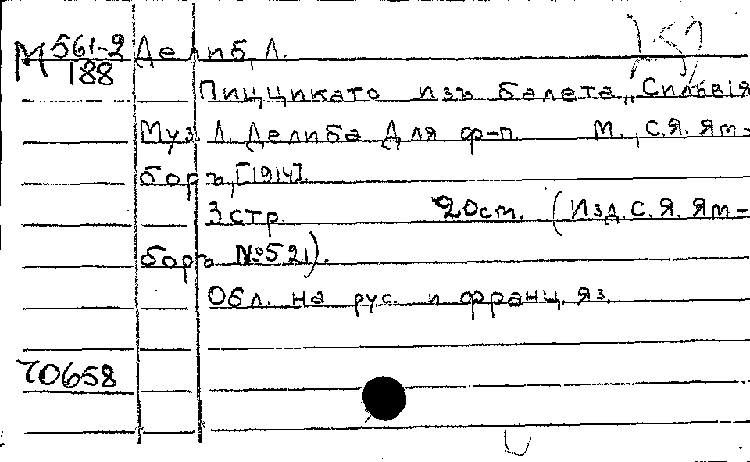 М 561-2/188 Делиб, Л.
Пиццикато изъ балета „Сильвія
Муз. Л. Делиба Для ф-п. М., С.Я. Ям=
боръ, [1914].
3 стр. 20 cm. (Изд. С.Я. Ям=
боръ №521).
Обл. на рус. и франц. яз.
70658